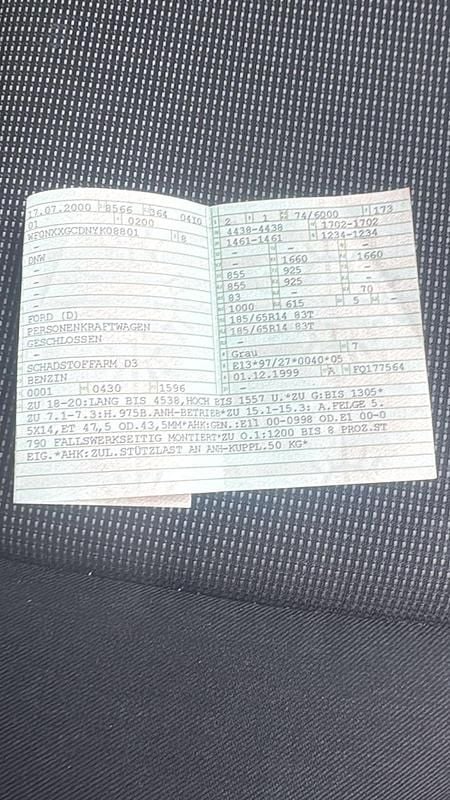 17.07.2000 8566 364 0410
01 0200
WF0NXXGCDNYK08801 8
DNW
-
-
-
FORD (D)
PERSONENKRAFTWAGEN
GESCHLOSSEN
-
SCHADSTOFFARM D3
BENZIN
0001 0430 1596
2 1 74/6000 173
4438-4438 1702-1702
1461-1461 1234-1234
- - -
- 1660 1660
855 925 -
855 925 -
83 - 70
1000 615 5 -
185/65R14 83T
185/65R14 83T
-
-
Grau 7
E13*97/27*0040*05
01.12.1999 A FQ177564
-
ZU 18-20:LANG BIS 4538,HOCH BIS 1557 U.*ZU G:BIS 1305*
ZU 7.1-7.3:H.975B.ANH-BETRIEB*ZU 15.1-15.3: A.FELGE 5.
5X14,ET 47,5 OD.43,5MM*AHK:GEN.:E11 00-0998 OD.E1 00-0
790 FALLSWERKSEITIG MONTIERT*ZU O.1:1200 BIS 8 PROZ.ST
EIG.*AHK:ZUL.STÜTZLAST AN ANH-KUPPL.50 KG*